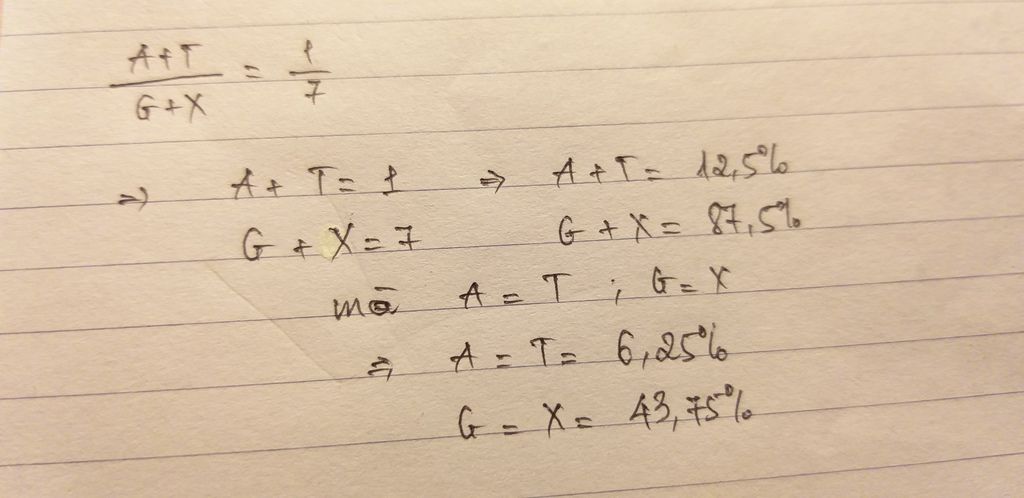 A+T / G+X = 1/7
=> A + T = 1 => A + T = 12,5%
G + X = 7 G + X = 87,5%
mà A = T ; G = X
=> A = T = 6,25%
G = X = 43,75%